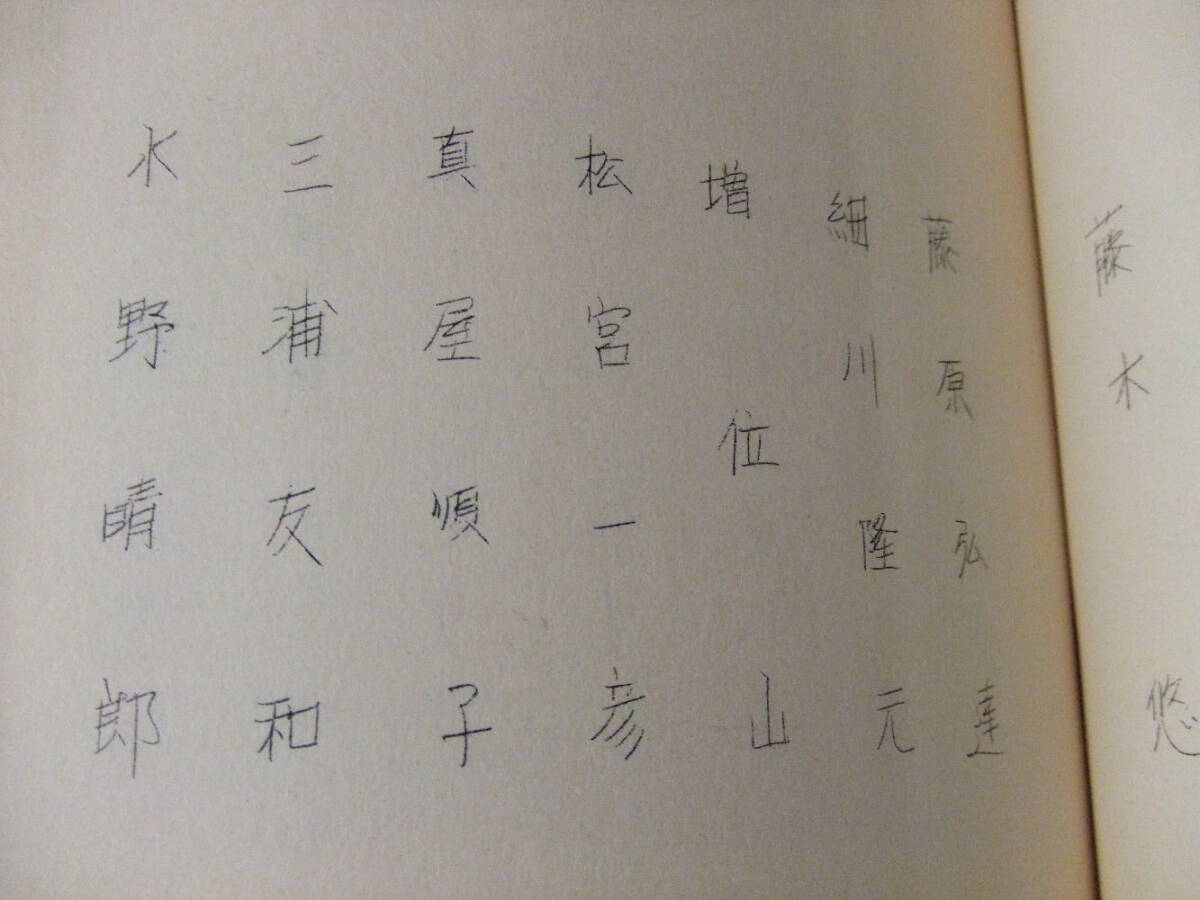 藤木悠
藤原弘達
細川隆元
増位山
松宮一彦
真屋順子
三浦友和
水野晴郎